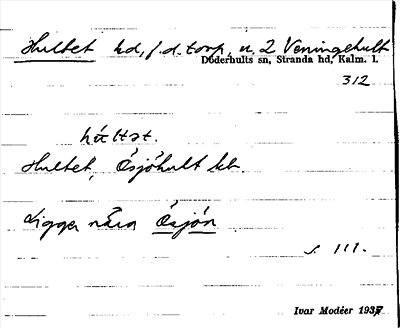 Hultet hd, f.d. torp, u. 2 Veningehult
Döderhults sn, Stranda hd, Kalm. l.
312
hɷltət.
Hultet, Ösjöhult kb.
Ligger nära Ösjön
s. 111.
Ivar Modéer 1937